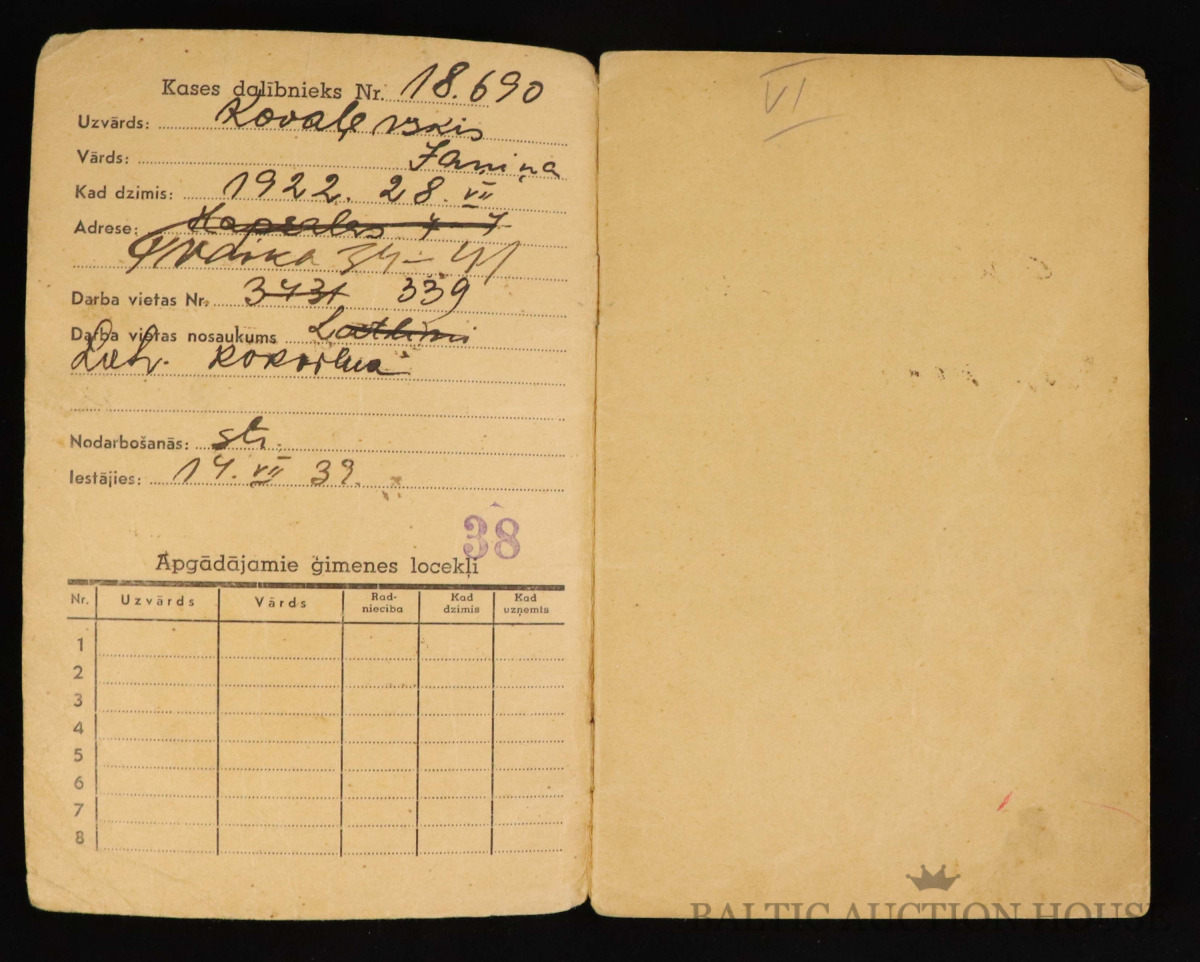 Kases dalībnieks Nr. 18.690
Uzvārds: Kovaļevskis
Vārds: Janiņa
Kad dzimis: 1922. 28. VII
Adrese: Hapsalas 4-7
34-41
Darba vietas Nr. 3431 339
Darba vietas nosaukums
Latv. kokvilna
Nodarbošanās: str.
Iestājies: 14. VII 39.
38
Apgādājamie ģimenes locekļi
Nr. Uzvārds Vārds Rad-niecība Kad dzimis Kad uzņemts
1
2
3
4
5
6
7
8
VI
BALTIC AUCTION HOUSE